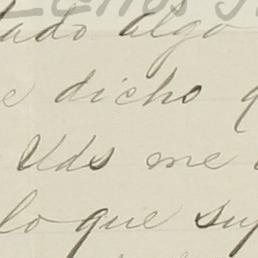 tado algo
e dicho
Uds me
lo que sup